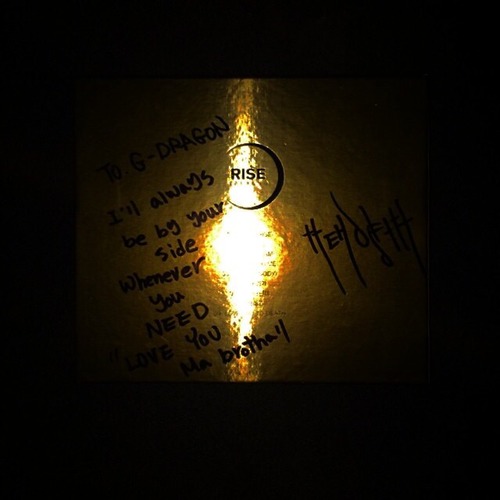 TO. G-DRAGON
RISE
I'll always
be by your
side
Whenever
you
NEED
"LOVE YOU
Ma brotha"